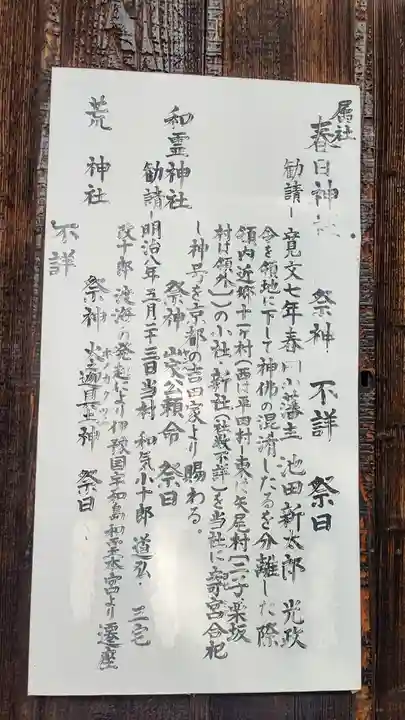 属社
春日神社 祭神 不詳 祭日
勧請ー寛文七年春 藩主 池田新太郎 光政
令を領地に下して神佛の混淆したるを分離した際
領内近郷十一ヶ村(西は平田村ー東は矢尾村「三子楽坂
村は領外」)の小社、新社(社数不詳)を当社に寄宮合祀
し神号を京都の吉田家より賜わる。
和霊神社 祭神 山家公頼命 祭日
勧請ー明治八年五月二十三日当村 和気小十郎 道弘 三宅
改十郎 渡海の発起により伊豫国宇和島和霊本宮より遷座
荒神社 祭神 火之迦具土神 祭日
ホノカグツチ
不詳